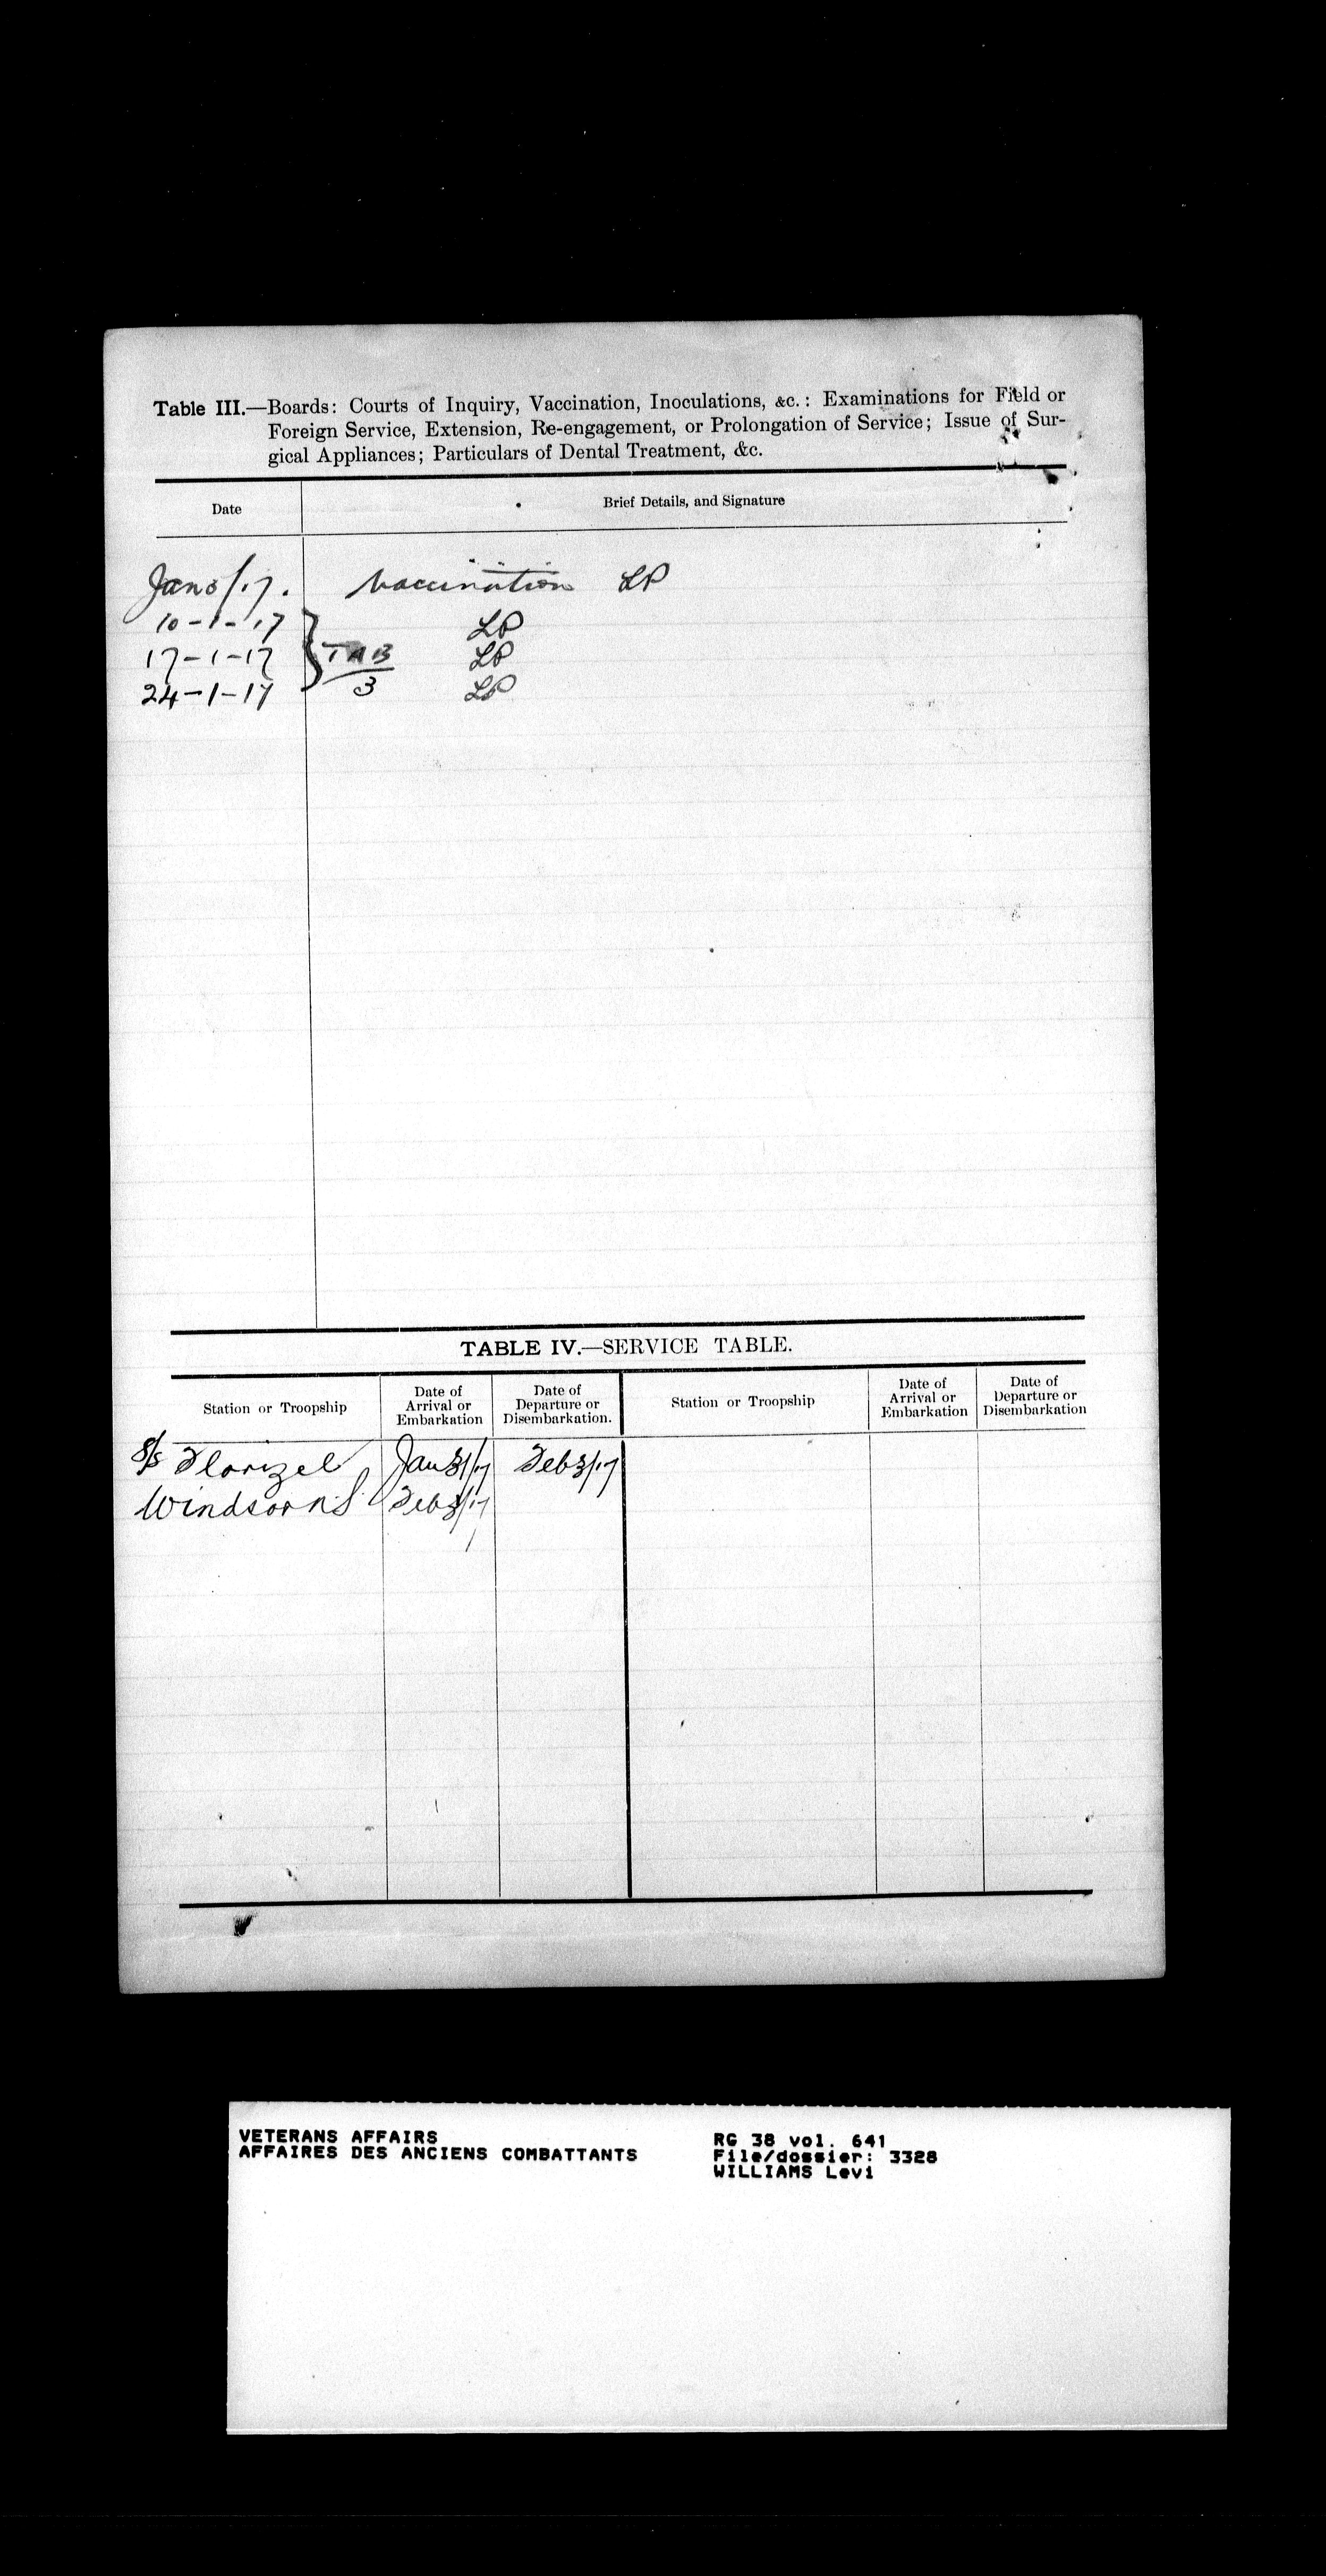 Table III.—Boards: Courts of Inquiry, Vaccination, Inoculations, &c.: Examinations for Field or
Foreign Service, Extension, Re-engagement, or Prolongation of Service; Issue of Sur-
gical Appliances; Particulars of Dental Treatment, &c.
Date Brief Details, and Signature
Vaccination LP
10-1-17 LP
17-1-17 TAB LP
24-1-17 3 LP
TABLE IV.—SERVICE TABLE.
Station or Troopship Date of Arrival or Embarkation Date of Departure or Disembarkation. Station or Troopship Date of Arrival or Embarkation Date of Departure or Disembarkation
S/S Florizel Jan 31/17 Feb 3/17
Windsor N.S. Feb 3/17
VETERANS AFFAIRS RG 38 vol. 641
AFFAIRES DES ANCIENS COMBATTANTS File/dossier: 3328
WILLIAMS Levi